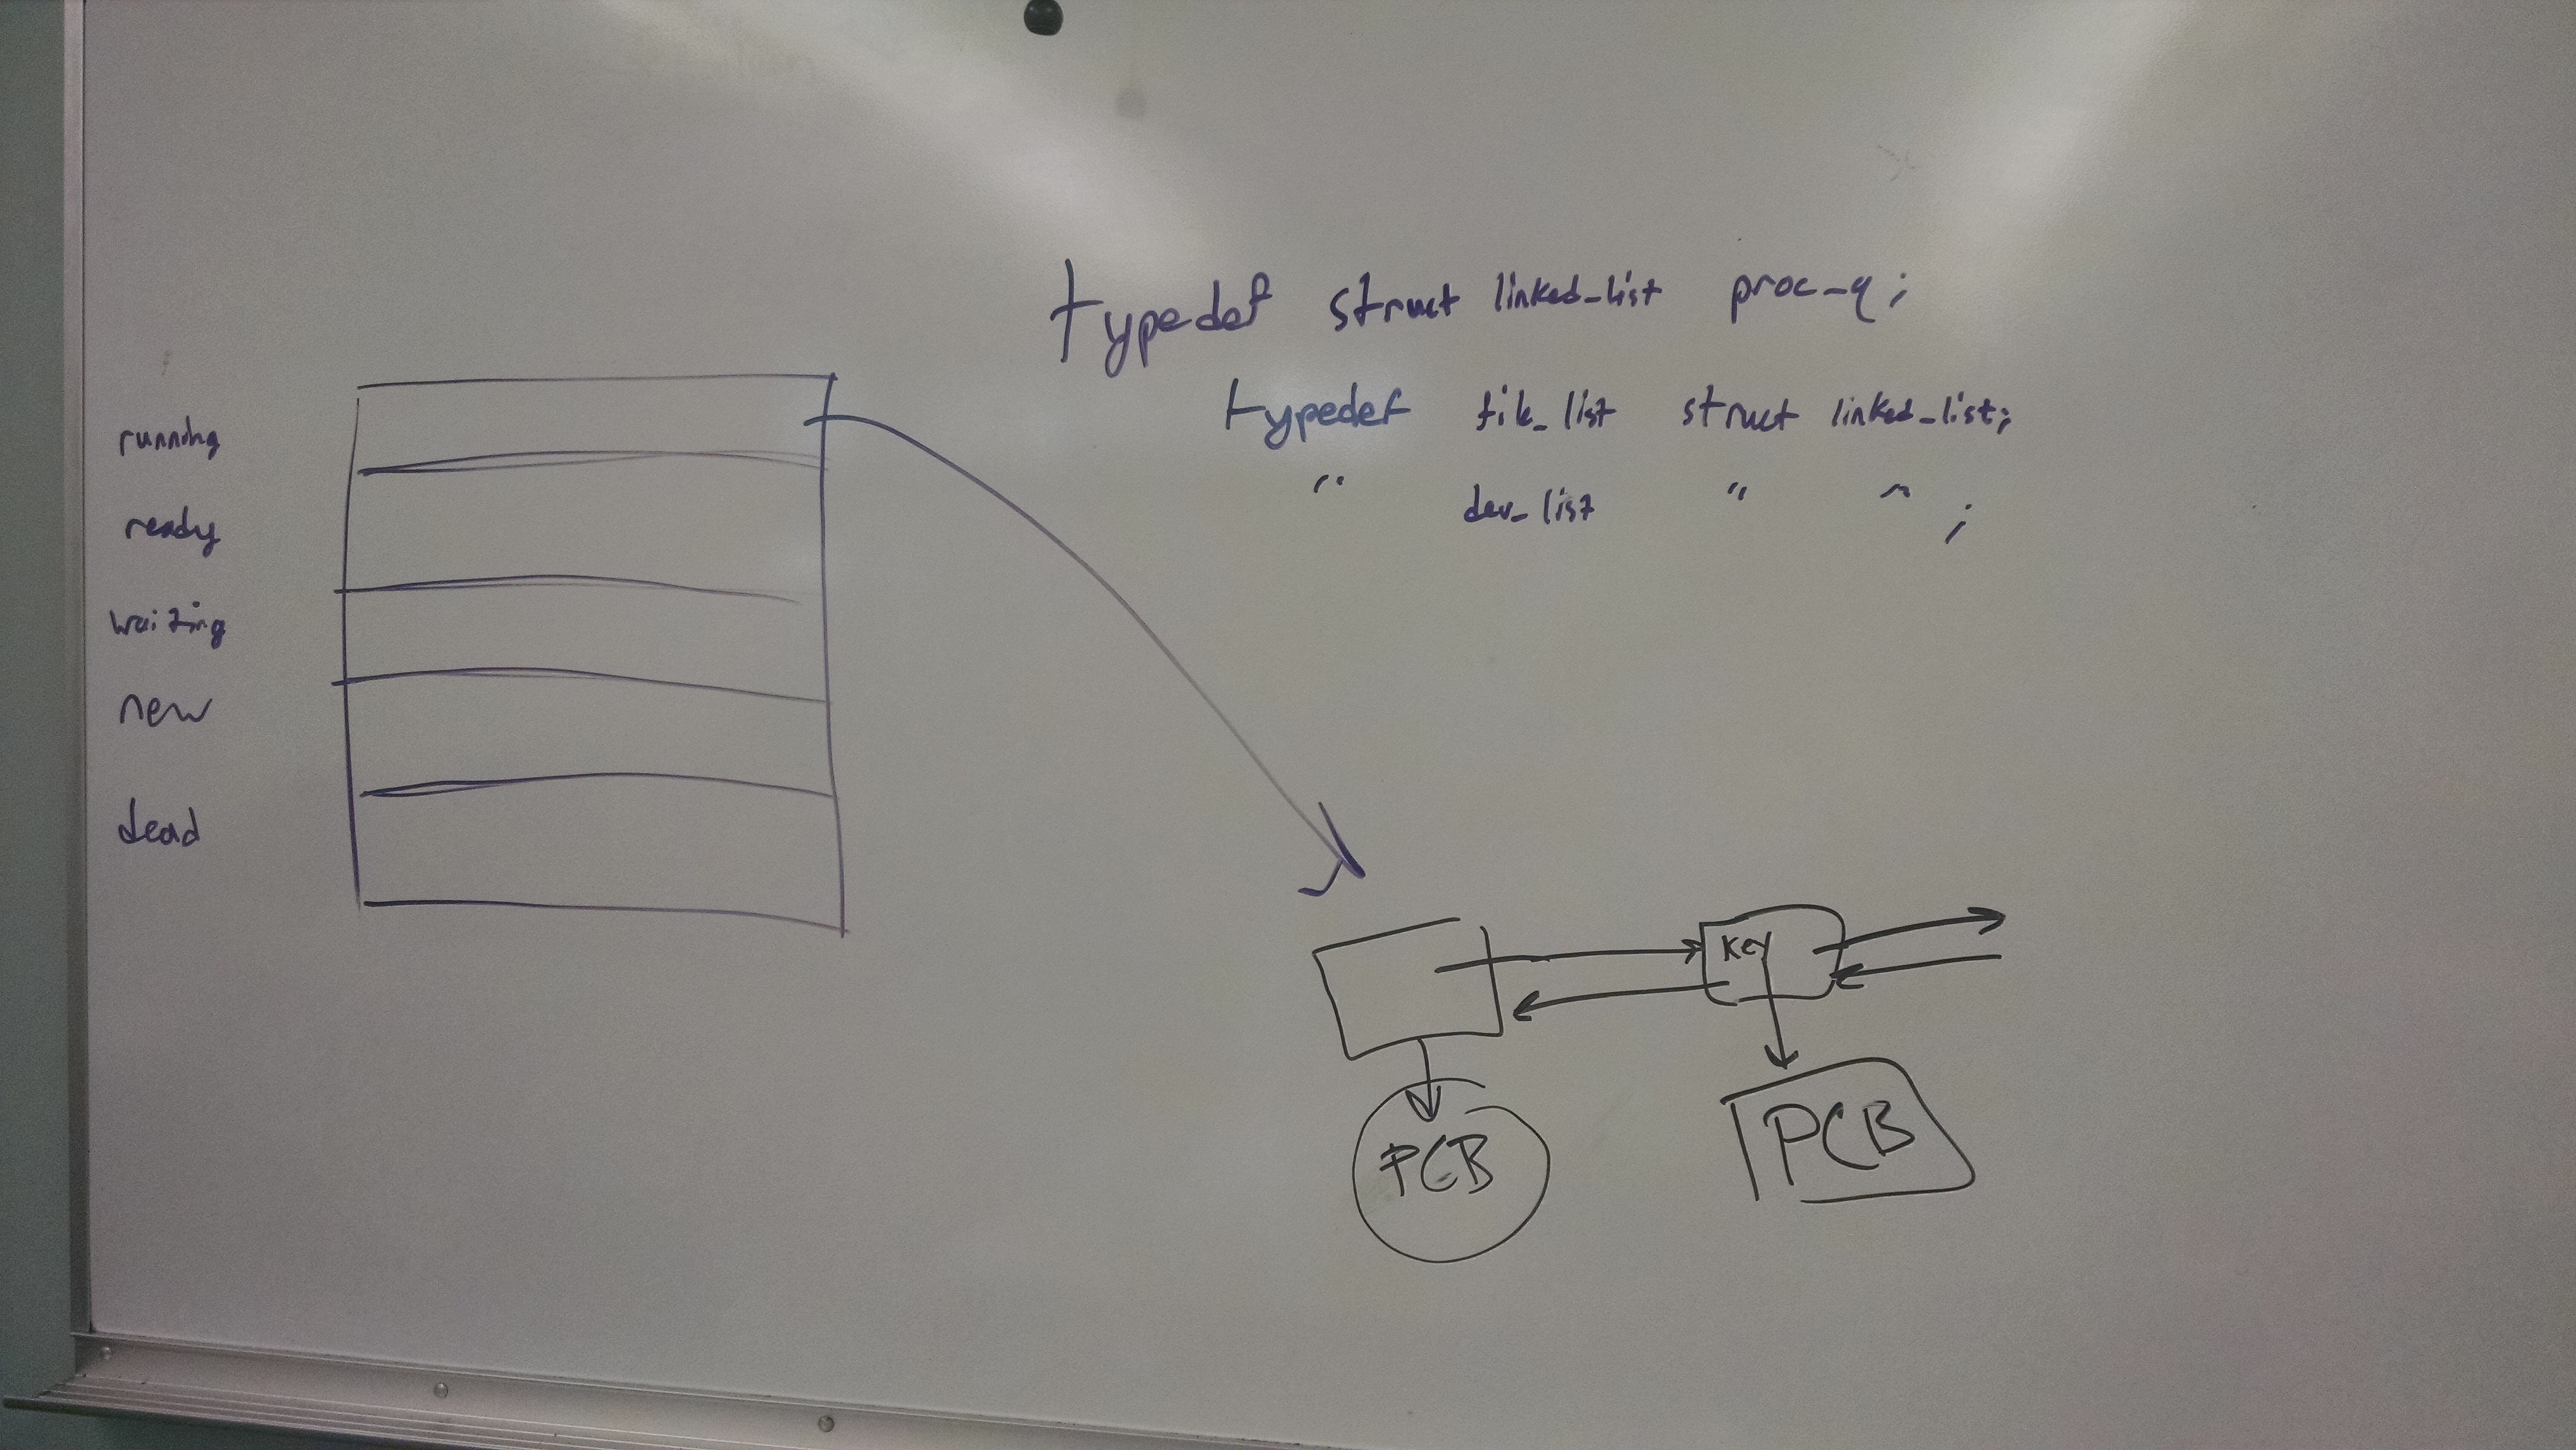 typedef struct linked_list proc_q;
typedef file_list struct linked_list;
" dev_list " " ;
running
ready
waiting
new
dead
Key
PCB
PCB